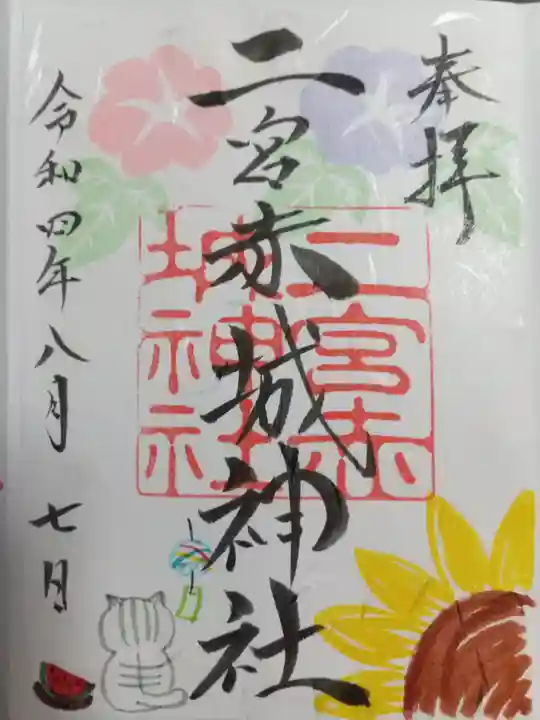 奉拝
二宮赤城神社
二宮赤
城神社
令和四年八月七日